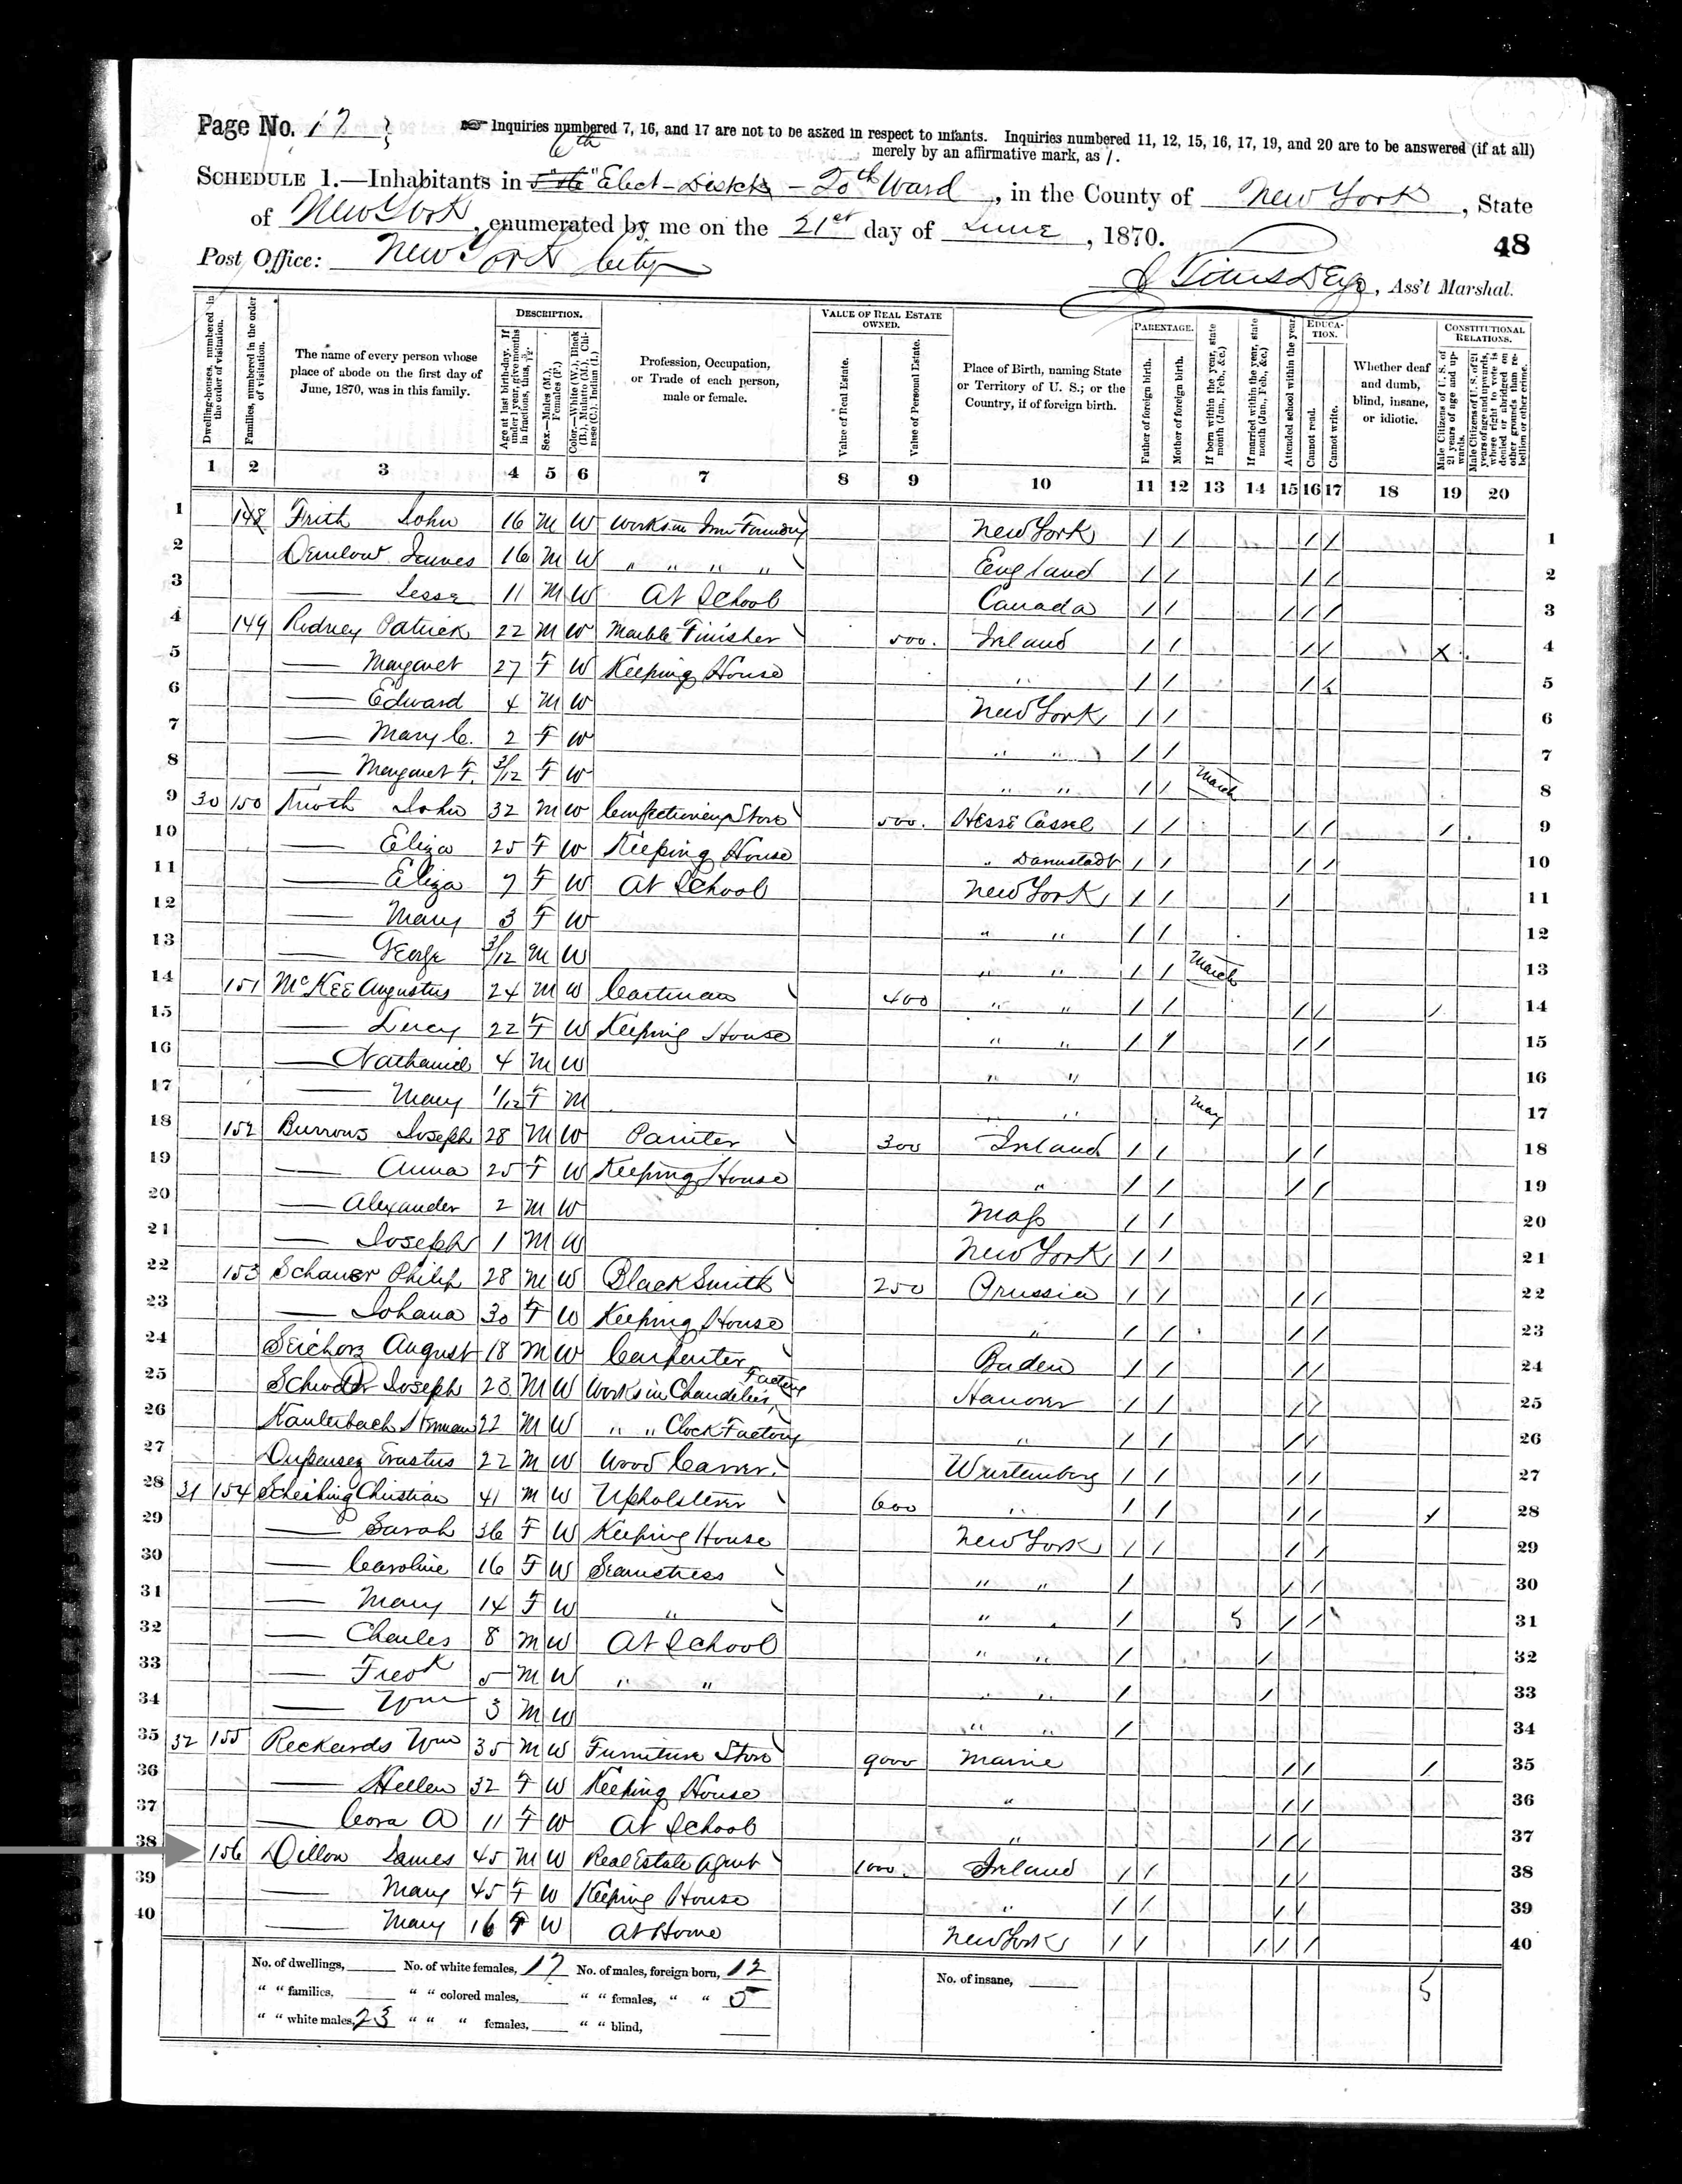 Page No. 17
☞ Inquiries numbered 7, 16, and 17 are not to be asked in respect to infants. Inquiries numbered 11, 12, 15, 16, 17, 19, and 20 are to be answered (if at all)
merely by an affirmative mark, as /.
6th
SCHEDULE 1.—Inhabitants in Elect-Distck - 20th Ward, in the County of New York, State
of New York, enumerated by me on the 21st day of June, 1870.
48
Post Office: New York City
, Ass't Marshal.
Dwelling-houses, numbered in the order of visitation.
Families, numbered in the order of visitation.
The name of every person whose place of abode on the first day of June, 1870, was in this family.
DESCRIPTION.
Age at last birth-day. If under 1 year, give months in fractions, thus, 3/12.
Sex.—Males (M.), Females (F.)
Color.—White (W.), Black (B.), Mulatto (M.), Chinese (C.), Indian (I.)
Profession, Occupation, or Trade of each person, male or female.
VALUE OF REAL ESTATE OWNED.
Value of Real Estate.
Value of Personal Estate.
Place of Birth, naming State or Territory of U. S.; or the Country, if of foreign birth.
PARENTAGE.
Father of foreign birth.
Mother of foreign birth.
If born within the year, state month (Jan., Feb., &c.)
If married within the year, state month (Jan., Feb., &c.)
EDUCATION.
Attended school within the year.
Cannot read.
Cannot write.
Whether deaf and dumb, blind, insane, or idiotic.
CONSTITUTIONAL RELATIONS.
Male Citizens of U. S. of 21 years of age and upwards.
Male Citizens of U. S. of 21 years of age and upwards, whose right to vote is denied or abridged on other grounds than rebellion or other crime.
1 2 3 4 5 6 7 8 9 10 11 12 13 14 15 16 17 18 19 20
1 148 Frith John 16 M W Works in Iron Foundry New York / / / / 1
2 James 16 M W " " " " England / / / / 2
3 —— Jesse 11 M W At School Canada / / / / / 3
4 149 Rodney Patrick 22 M W Marble Finisher 500. Ireland / / / / X 4
5 —— Margaret 27 F W Keeping House " / / / / 5
6 —— Edward 4 M W New York / / 6
7 —— Mary C. 2 F W " " / / 7
8 —— Margaret F. 3/12 F W " " / / March 8
9 30 150 John 32 M W Confectionery Store 500. Hesse Cassel / / / / / 9
10 —— Eliza 25 F W Keeping House " Darmstadt / / / / 10
11 —— Eliza 7 F W At School New York / / / 11
12 —— Mary 3 F W " " / / 12
13 —— George 3/12 M W " " / / March 13
14 151 McKee Augustus 24 M W Cartman 400 " " / / / / / 14
15 —— Lucy 22 F W Keeping House " " / / / / 15
16 —— Nathaniel 4 M W " " 16
17 —— Mary 1/12 F M " " May 17
18 152 Burrows Joseph 28 M W Painter 300 Ireland / / / / 18
19 —— Anna 25 F W Keeping House " / / / / 19
20 —— Alexander 2 M W Mass / / 20
21 —— Joseph 1 M W New York / / 21
22 153 Schauer Philip 28 M W Black Smith 250 Prussia / / / / 22
23 —— Johana 30 F W Keeping House " / / / / 23
24 August 18 M W Carpenter Baden / / / / 24
25 Joseph 28 M W Works in Chandelier Factory Hanover / / / / 25
26 Kauterbach Herman 22 M W " " Clock Factory " / / / / 26
27 Erastus 22 M W Wood Carver Wurtemberg / / / / 27
28 31 154 Scheihing Christian 41 M W Upholsterer 600 " / / / / / 28
29 —— Sarah 36 F W Keeping House New York / / / / 29
30 —— Caroline 16 F W Seamstress " " / / / 30
31 —— Mary 14 F W " " " / 5 / / 31
32 —— Charles 8 M W At School " " / / 32
33 —— Fredk 5 M W " " " " / / 33
34 —— Wm 3 M W " " / 34
35 32 155 Reckards Wm 35 M W Furniture Store 9000 Maine / / / 35
36 —— Hellen 32 F W Keeping House " / / 36
37 —— Cora A 11 F W At School " / / / 37
38 156 Dillon James 45 M W Real Estate Agent 1000. Ireland / / / / 38
39 —— Mary 45 F W Keeping House " / / / / 39
40 —— Mary 16 F W At Home New York / / / / / 40
No. of dwellings, No. of white females, 17 No. of males, foreign born, 12 No. of insane,
" " families, " " colored males, " " females, " " 5 5
" " white males, 23 " " " females, " " blind,